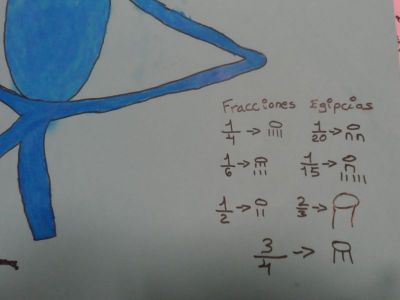 Fracciones Egipcias
1/4 → 1/20 →
1/6 → 1/15 →
1/2 → 2/3 →
3/4 →